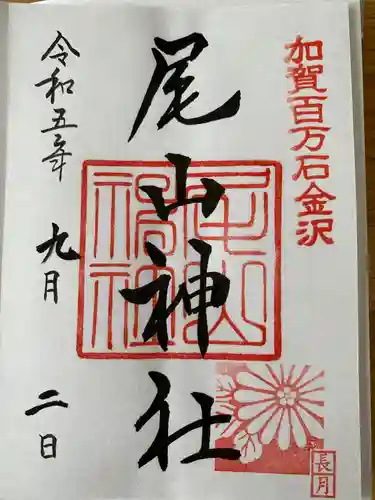 加賀百万石金沢
尾山神社
尾山神社
長月
令和五年 九月 二日